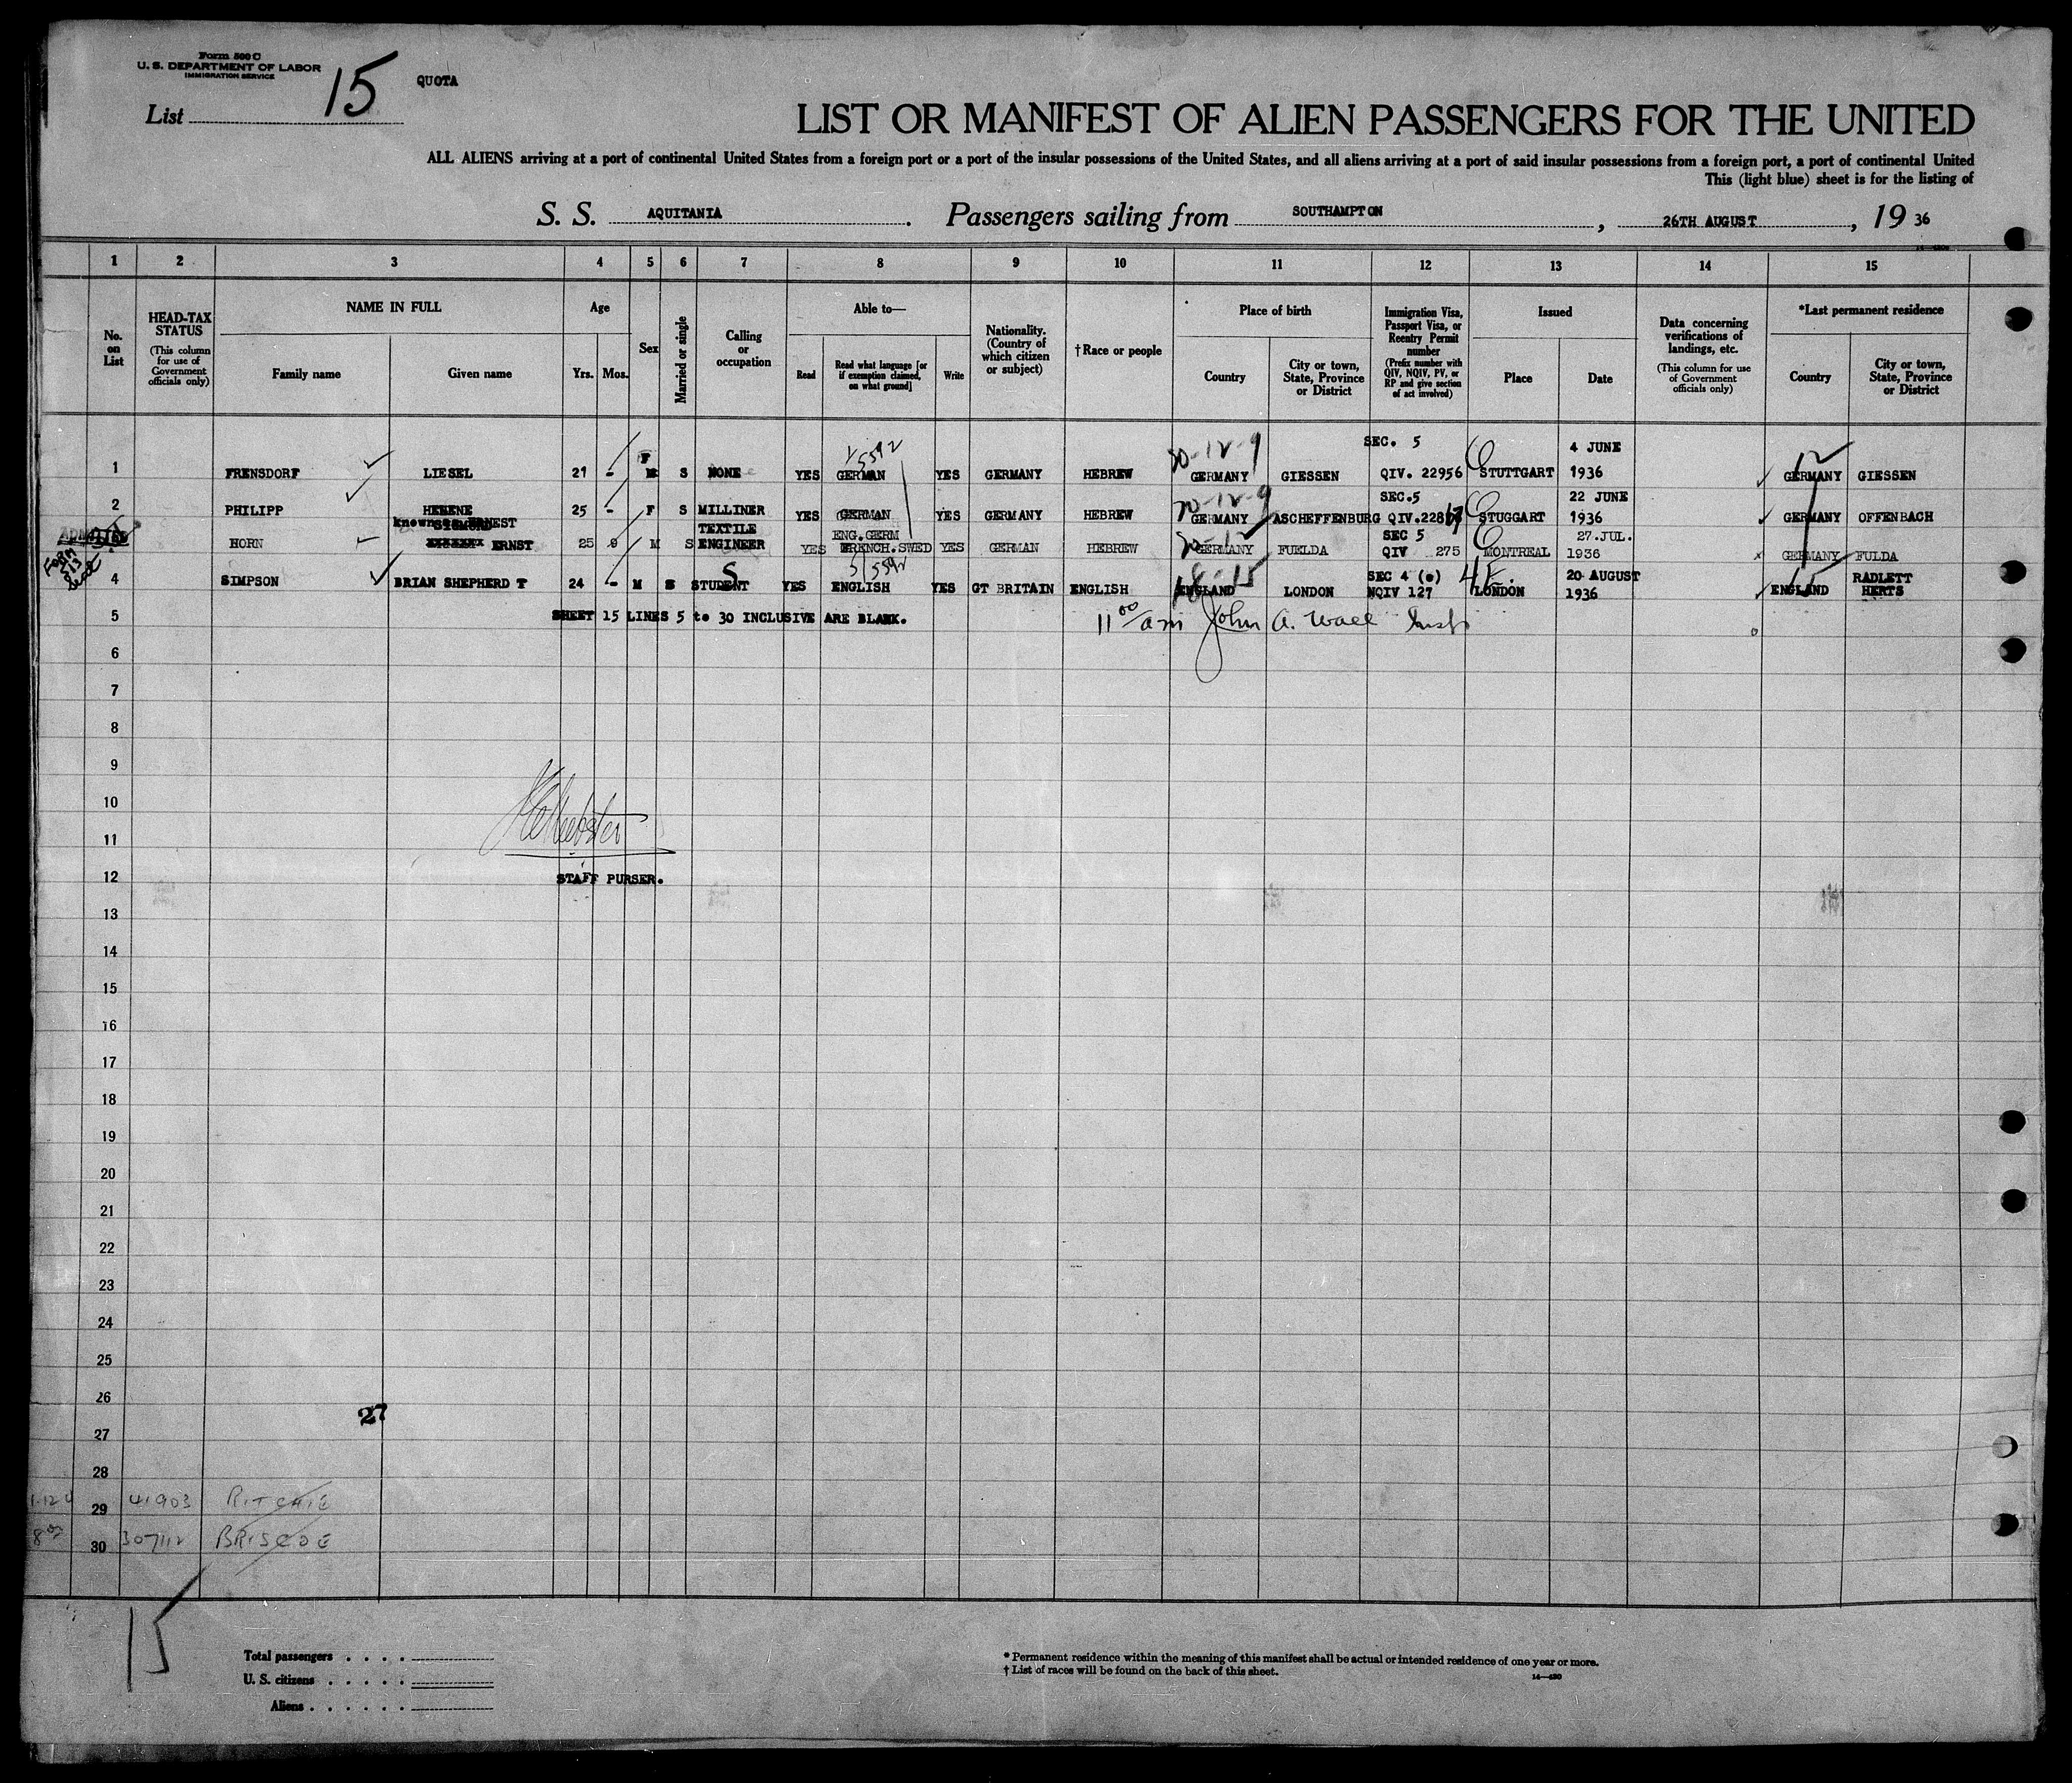 Form 500 C
U. S. DEPARTMENT OF LABOR
IMMIGRATION SERVICE
List 15
QUOTA
LIST OR MANIFEST OF ALIEN PASSENGERS FOR THE UNITED
ALL ALIENS arriving at a port of continental United States from a foreign port or a port of the insular possessions of the United States, and all aliens arriving at a port of said insular possessions from a foreign port, a port of continental United
This (light blue) sheet is for the listing of
S. S. AQUITANIA. Passengers sailing from SOUTHAMPTON, 26TH AUGUST, 19 36
1 2 3 4 5 6 7 8 9 10 11 12 13 14 15
No. on List
HEAD-TAX STATUS (This column for use of Government officials only)
NAME IN FULL
Family name
Given name
Age
Yrs. Mos.
Sex
Married or single
Calling or occupation
Able to—
Read
Read what language [or if exemption claimed, on what ground]
Write
Nationality. (Country of which citizen or subject)
†Race or people
Place of birth
Country
City or town, State, Province or District
Immigration Visa, Passport Visa, or Reentry Permit number (Prefix number with QIV, NQIV, PV, or RP and give section of act involved)
Issued
Place
Date
Data concerning verifications of landings, etc. (This column for use of Government officials only)
*Last permanent residence
Country
City or town, State, Province or District
20-12-9
SEC. 5 4 JUNE
1 FRENSDORF LIESEL 21 - F S NONE YES GERMAN YES GERMANY HEBREW GERMANY GIESSEN QIV. 22956 STUTTGART 1936 GERMANY GIESSEN
20-12-9
SEC.5 22 JUNE
2 PHILIPP HELENE 25 - F S MILLINER YES GERMAN YES GERMANY HEBREW GERMANY ASCHEFFENBURG QIV. STUGGART 1936 GERMANY OFFENBACH
known as ERNEST TEXTILE ENG.GERM SEC 5 27.JUL.
HORN ERNST 25 9 M S ENGINEER YES FRENCH.SWED YES GERMAN HEBREW GERMANY FUELDA QIV 275 MONTREAL 1936 GERMANY FULDA
ADMITTED
Form 513
SEC 4 (e) 20 AUGUST RADLETT
4 SIMPSON BRIAN SHEPHERD T 24 - M S STUDENT YES ENGLISH YES GT BRITAIN ENGLISH ENGLAND LONDON NQIV 127 LONDON 1936 ENGLAND HERTS
5 SHEET 15 LINES 5 to 30 INCLUSIVE ARE BLANK.
11 00 am John A. Wall Insp
6
7
8
9
10
11
12
STAFF PURSER.
13
14
15
16
17
18
19
20
21
22
23
24
25
26
27
27
28
29 41903 RITCHIE
30 307112 BRISCOE
15
Total passengers . . . .
U. S. citizens . . . . .
Aliens . . . . . .
* Permanent residence within the meaning of this manifest shall be actual or intended residence of one year or more.
† List of races will be found on the back of this sheet.
14—430